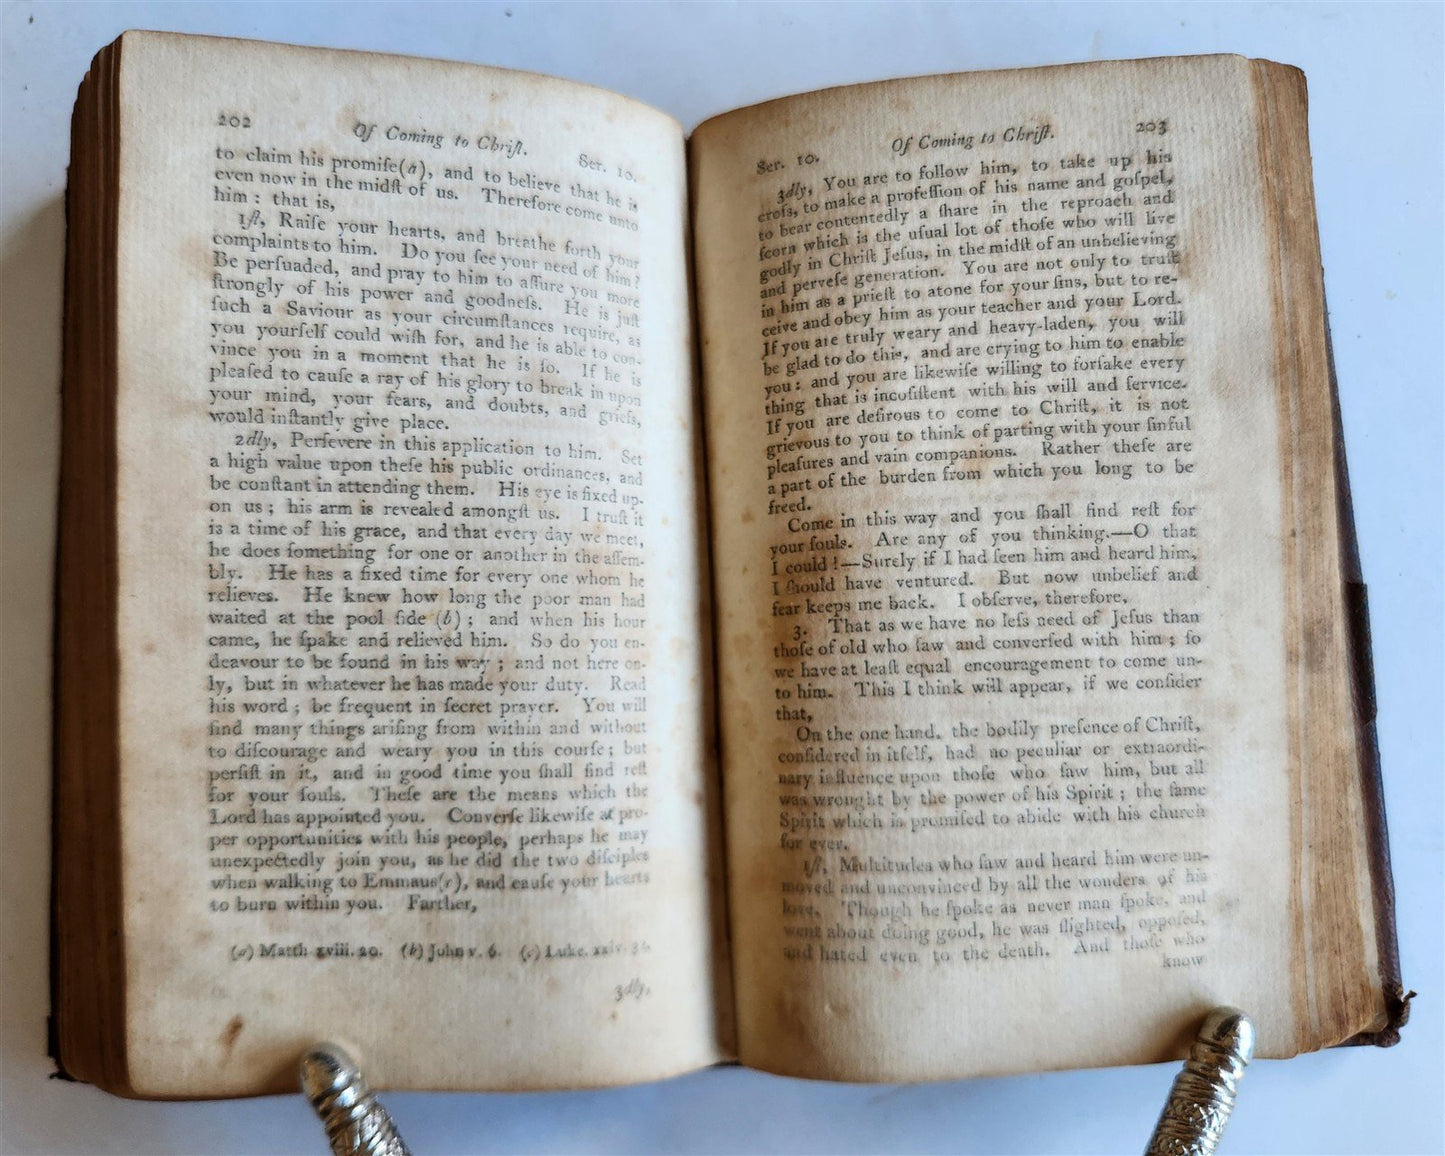 202
Of Coming to Chriſt.
Ser. 10.
to claim his promiſe(a), and to believe that he is
even now in the midſt of us. Therefore come unto
him: that is,
1ſt, Raiſe your hearts, and breathe forth your
complaints to him. Do you ſee your need of him?
Be perſuaded, and pray to him to aſſure you more
ſtrongly of his power and goodneſs. He is juſt
ſuch a Saviour as your circumſtances require, as
you yourſelf could wiſh for, and he is able to con-
vince you in a moment that he is ſo. If he is
pleaſed to cauſe a ray of his glory to break in upon
your mind, your fears, and doubts, and griefs,
would inſtantly give place.
2dly, Perſevere in this application to him. Set
a high value upon theſe his public ordinances, and
be conſtant in attending them. His eye is fixed up-
on us; his arm is revealed amongſt us. I truſt it
is a time of his grace, and that every day we meet,
he does ſomething for one or another in the aſſem-
bly. He has a fixed time for every one whom he
relieves. He knew how long the poor man had
waited at the pool ſide (b); and when his hour
came, he ſpake and relieved him. So do you en-
deavour to be found in his way; and not here on-
ly, but in whatever he has made your duty. Read
his word; be frequent in ſecret prayer. You will
find many things ariſing from within and without
to diſcourage and weary you in this courſe; but
perſiſt in it, and in good time you ſhall find reſt
for your ſouls. Theſe are the means which the
Lord has appointed you. Converſe likewiſe at pro-
per opportunities with his people, perhaps he may
unexpectedly join you, as he did the two diſciples
when walking to Emmaus(c), and cauſe your hearts
to burn within you. Farther,
(a) Matth xviii. 20. (b) John v. 6. (c) Luke. xxiv. 34.
3dly,
Ser. 10.
Of Coming to Chriſt.
203
3dly, You are to follow him, to take up his
croſs, to make a profeſſion of his name and goſpel,
to bear contentedly a ſhare in the reproach and
ſcorn which is the uſual lot of thoſe who will live
godly in Chriſt Jeſus, in the midſt of an unbelieving
and perveſe generation. You are not only to truſt
in him as a prieſt to atone for your ſins, but to re-
ceive and obey him as your teacher and your Lord.
If you are truly weary and heavy-laden, you will
be glad to do this, and are crying to him to enable
you: and you are likewiſe willing to forſake every
thing that is inconſiſtent with his will and ſervice.
If you are deſirous to come to Chriſt, it is not
grievous to you to think of parting with your ſinful
pleaſures and vain companions. Rather theſe are
a part of the burden from which you long to be
freed.
Come in this way and you ſhall find reſt for
your ſouls. Are any of you thinking.—O that
I could!—Surely if I had ſeen him and heard him,
I ſhould have ventured. But now unbelief and
fear keeps me back. I obſerve, therefore,
3. That as we have no leſs need of Jeſus than
thoſe of old who ſaw and converſed with him; ſo
we have at leaſt equal encouragement to come un-
to him. This I think will appear, if we conſider
that,
On the one hand, the bodily preſence of Chriſt,
conſidered in itſelf, had no peculiar or extraordi-
nary influence upon thoſe who ſaw him, but all
was wrought by the power of his Spirit; the ſame
Spirit which is promiſed to abide with his church
for ever.
1ſt, Multitudes who ſaw and heard him were un-
moved and unconvinced by all the wonders of his
love. Though he ſpoke as never man ſpoke, and
went about doing good, he was ſlighted, oppoſed,
and hated even to the death. And thoſe who
know